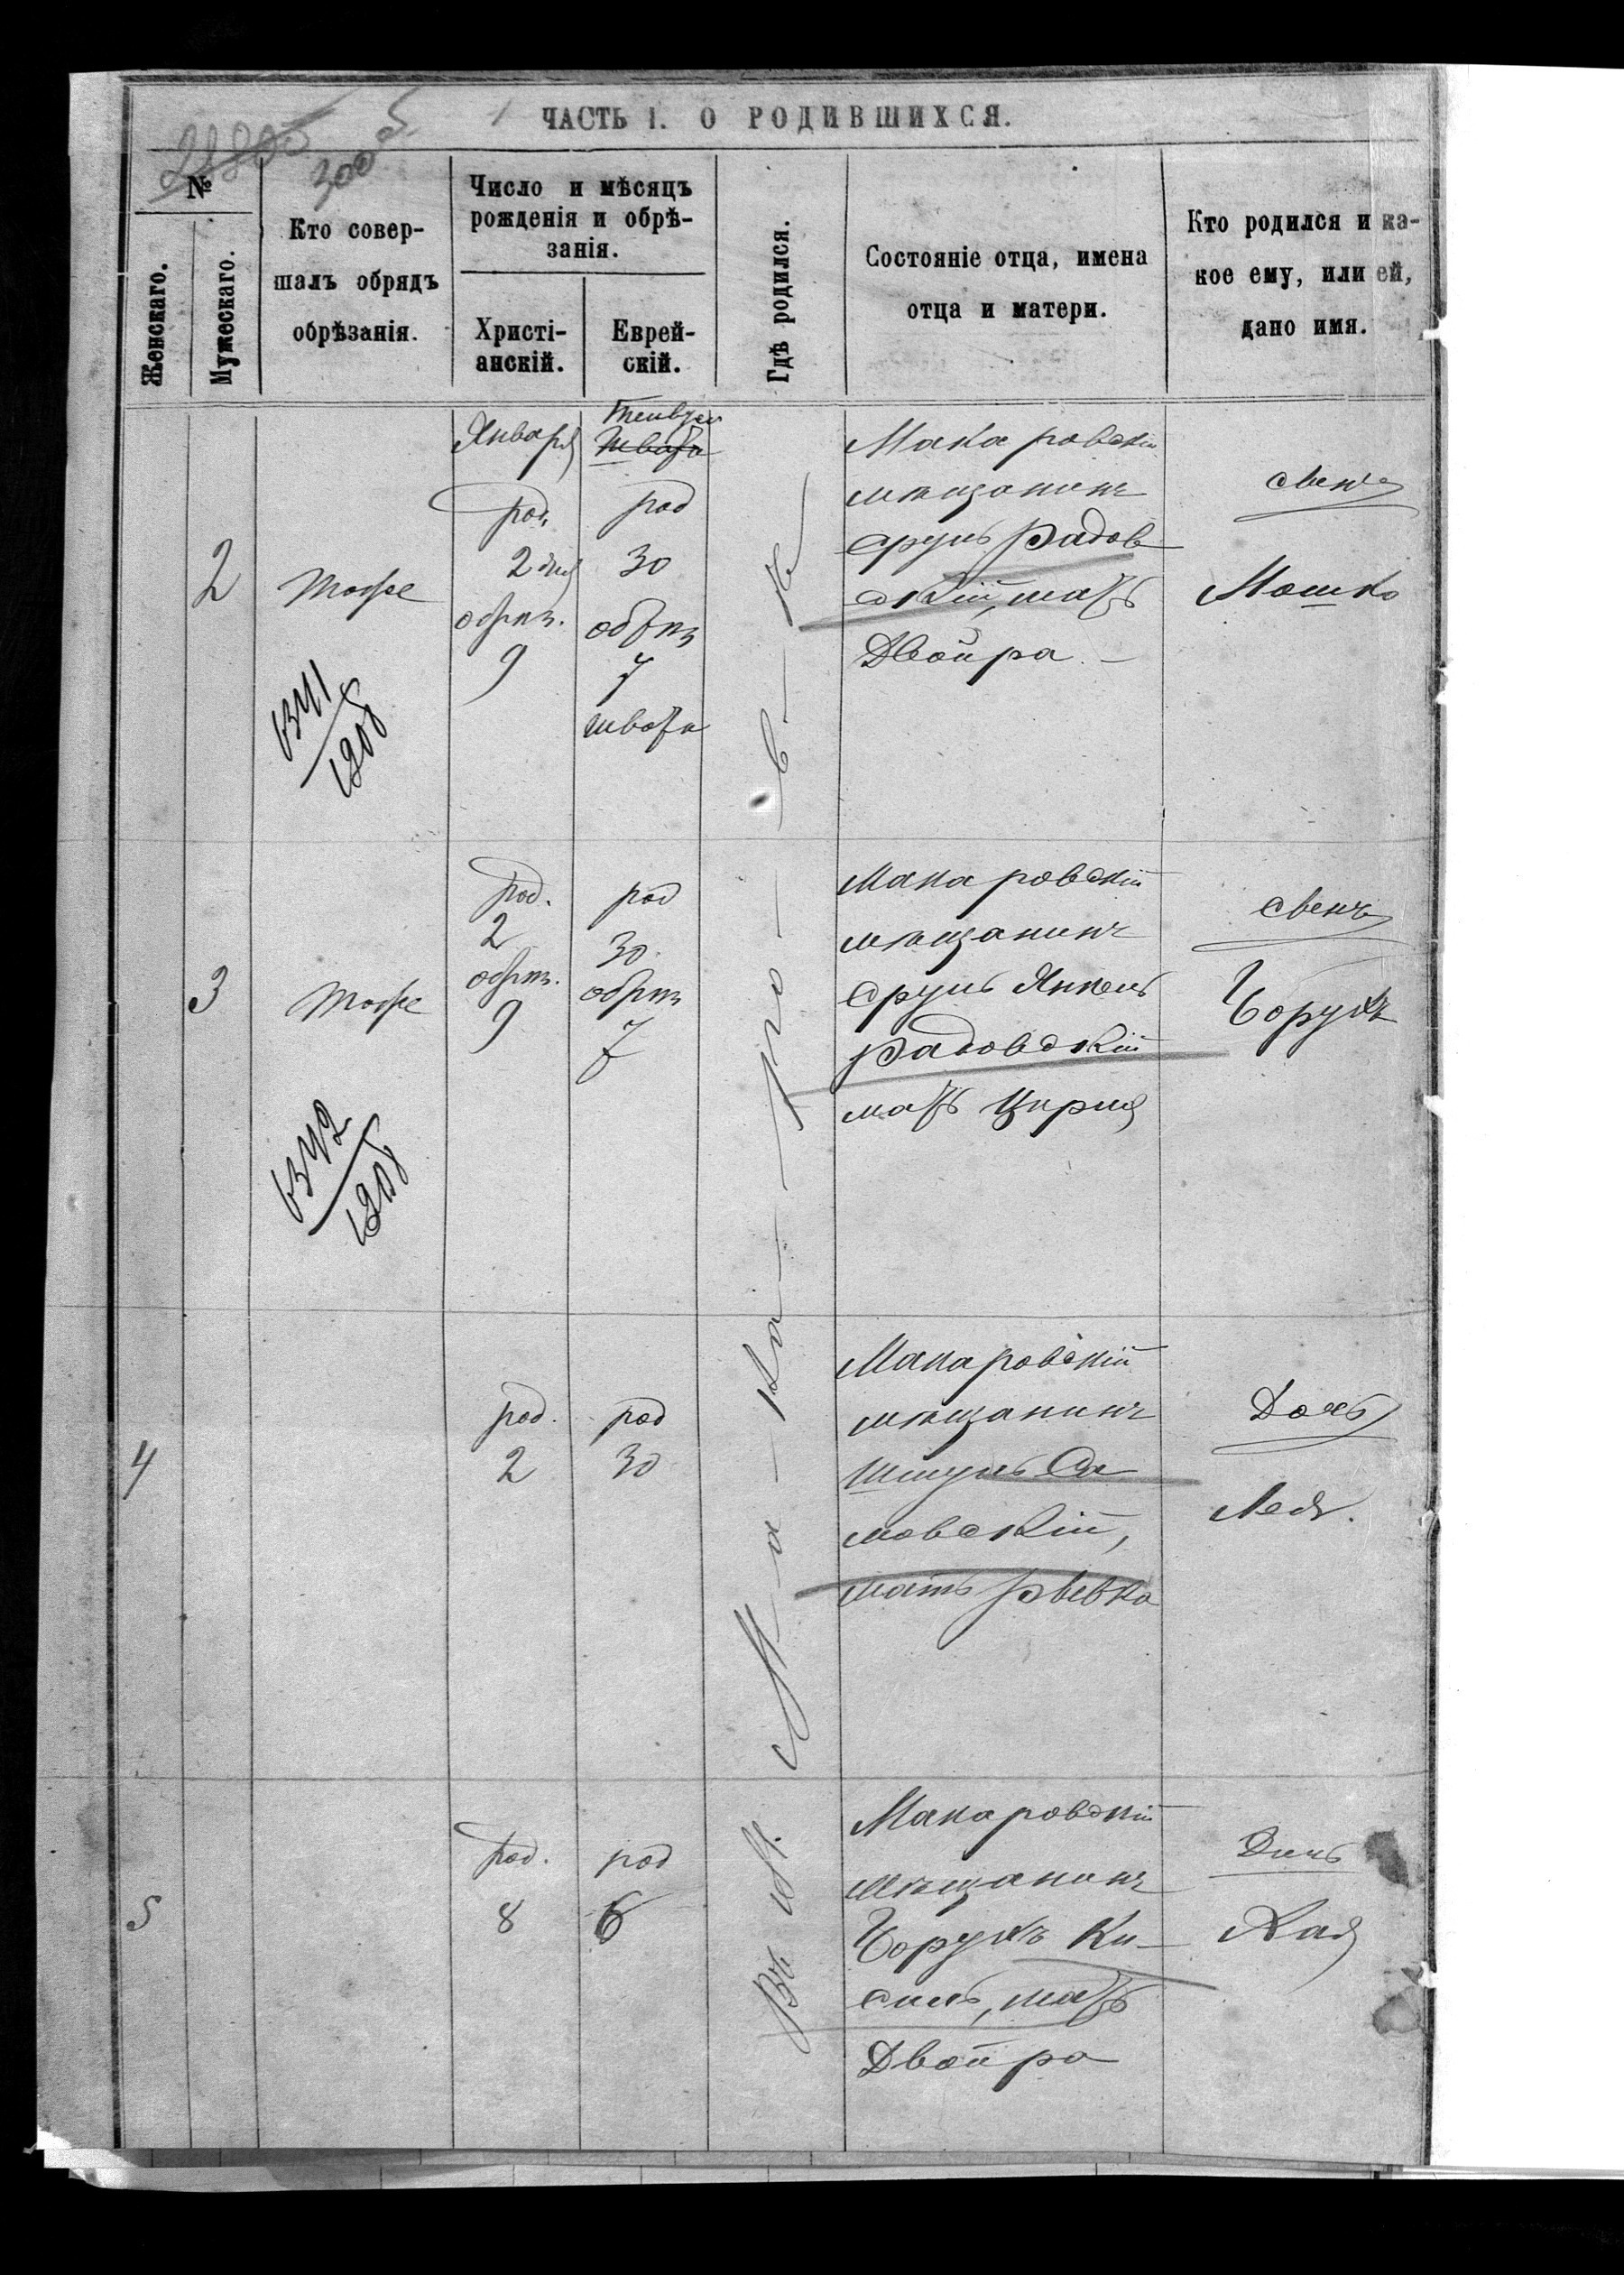 ЧАСТЬ I. О РОДИВШИХСЯ.
300
№
Женскаго.
Мужескаго.
Кто совер-
шалъ обрядъ
обрѣзанія.
Число и мѣсяцъ
рожденія и обрѣ-
занія.
Христі-
анскій.
Еврей-
скій.
Гдѣ родился.
Состояніе отца, имена
отца и матери.
Кто родился и ка-
кое ему, или ей,
дано имя.
Въ М. Ма-ка-ро-в-ѣ
2
тотже
6341
1908
Января
род.
2 дня
обрѣз.
9
Тейвуса
Швота
род
30
обрѣз
7
швота
Макаровскій
мѣщанинъ
Сруль Радов-
скій, мать
Двойра.
сынъ
Мошко
3
тотже
6342
1908
род.
2
обрѣз.
9
род
30
обрѣз
7
Макаровскій
мѣщанинъ
Сруль Янкель
Радовскій
мать Цирля
сынъ
Борухъ
4
род.
2
род
30
Макаровскій
мѣщанинъ
Шмуль
мовскій,
мать Ривка
Дочь
Лея.
5
род.
8
род
6
Макаровскій
мѣщанинъ
Борухъ Ки-
силь, мать
Двойра
Дочь
Хая